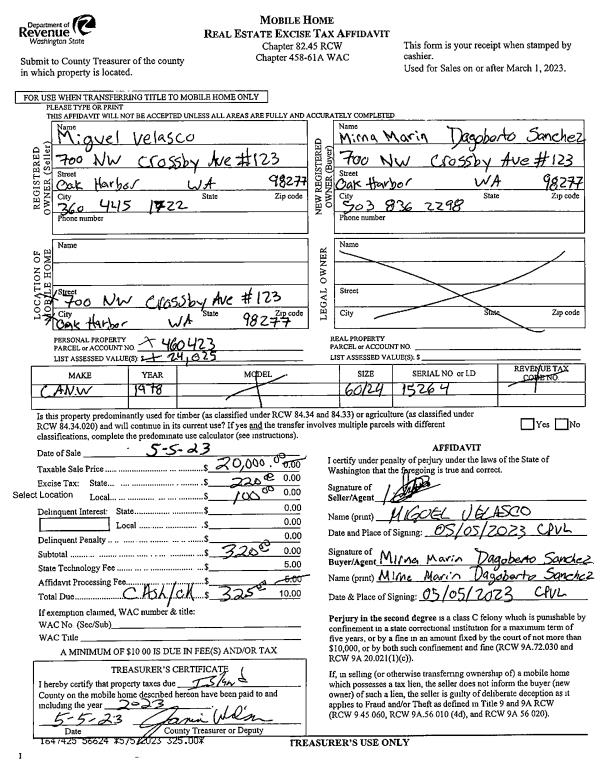 Department of
Revenue
Washington State
Submit to County Treasurer of the county
in which property is located.
MOBILE HOME
REAL ESTATE EXCISE TAX AFFIDAVIT
Chapter 82.45 RCW
Chapter 458-61A WAC
This form is your receipt when stamped by
cashier.
Used for Sales on or after March 1, 2023.
FOR USE WHEN TRANSFERRING TITLE TO MOBILE HOME ONLY
PLEASE TYPE OR PRINT
THIS AFFIDAVIT WILL NOT BE ACCEPTED UNLESS ALL AREAS ARE FULLY AND ACCURATELY COMPLETED
REGISTERED
OWNER (Seller)
Name
Miguel Velasco
700 NW Crossby Ave #123
Street
Oak Harbor WA 98277
City State Zip code
360 445 1722
Phone number
NEW REGISTERED
OWNER (Buyer)
Name
Mirna Marin Dagoberto Sanchez
700 NW Crossby Ave #123
Street
Oak Harbor WA 98277
City State Zip code
503 836 2298
Phone number
LOCATION OF
MOBILE HOME
Name
Street
700 NW Crossby Ave #123
City State Zip code
Oak Harbor WA 98277
LEGAL OWNER
Name
Street
City State Zip code
PERSONAL PROPERTY
PARCEL or ACCOUNT NO. 460423
LIST ASSESSED VALUE(S): $ 24,025
REAL PROPERTY
PARCEL or ACCOUNT NO.
LIST ASSESSED VALUE(S): $
MAKE YEAR MODEL SIZE SERIAL NO. or I.D. REVENUE TAX CODE NO.
CANW 1978 60/24 15264
Is this property predominantly used for timber (as classified under RCW 84.34 and 84.33) or agriculture (as classified under
RCW 84.34.020) and will continue in its current use? If yes and the transfer involves multiple parcels with different
classifications, complete the predominate use calculator (see instructions).
Yes No
Date of Sale 5-5-23
Taxable Sale Price $ 20,000.00 0.00
Excise Tax: State $ 220.00 0.00
Select Location Local $ 100.00 0.00
Delinquent Interest: State $ 0.00
Local $ 0.00
Delinquent Penalty $ 0.00
Subtotal $ 320.00 0.00
State Technology Fee $ 5.00
Affidavit Processing Fee $ 5.00
Total Due CASH/CK $ 325.00 10.00
If exemption claimed, WAC number & title:
WAC No. (Sec/Sub)
WAC Title
A MINIMUM OF $10 00 IS DUE IN FEE(S) AND/OR TAX
TREASURER'S CERTIFICATE
I hereby certify that property taxes due Island
County on the mobile home described hereon have been paid to and
including the year 2023
5-5-23
Date County Treasurer or Deputy
1647425 56624 *5/5/2023 325.00*
AFFIDAVIT
I certify under penalty of perjury under the laws of the State of
Washington that the foregoing is true and correct.
Signature of
Seller/Agent
Name (print) MIGUEL VELASCO
Date and Place of Signing: 05/05/2023 CPVL
Signature of
Buyer/Agent Mirna Marin Dagoberto Sanchez
Name (print) Mirna Marin Dagoberto Sanchez
Date & Place of Signing: 05/05/2023 CPVL
Perjury in the second degree is a class C felony which is punishable by
confinement in a state correctional institution for a maximum term of
five years, or by a fine in an amount fixed by the court of not more than
$10,000, or by both such confinement and fine (RCW 9A.72.030 and
RCW 9A 20.021(1)(c)).
If, in selling (or otherwise transferring ownership of) a mobile home
which possesses a tax lien, the seller does not inform the buyer (new
owner) of such a lien, the seller is guilty of deliberate deception as it
applies to Fraud and/or Theft as defined in Title 9 and 9A RCW
(RCW 9.45 060, RCW 9A.56 010 (4d), and RCW 9A 56 020).
TREASURER'S USE ONLY
1